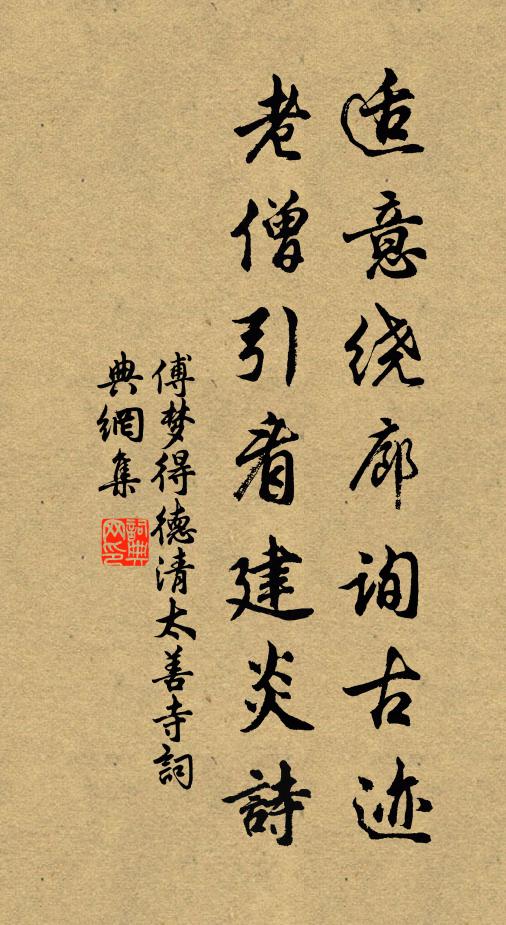 适意绕廊询古迹
老僧引看建炎詩
傅梦得德清太善寺詞
典網集
詞典网印